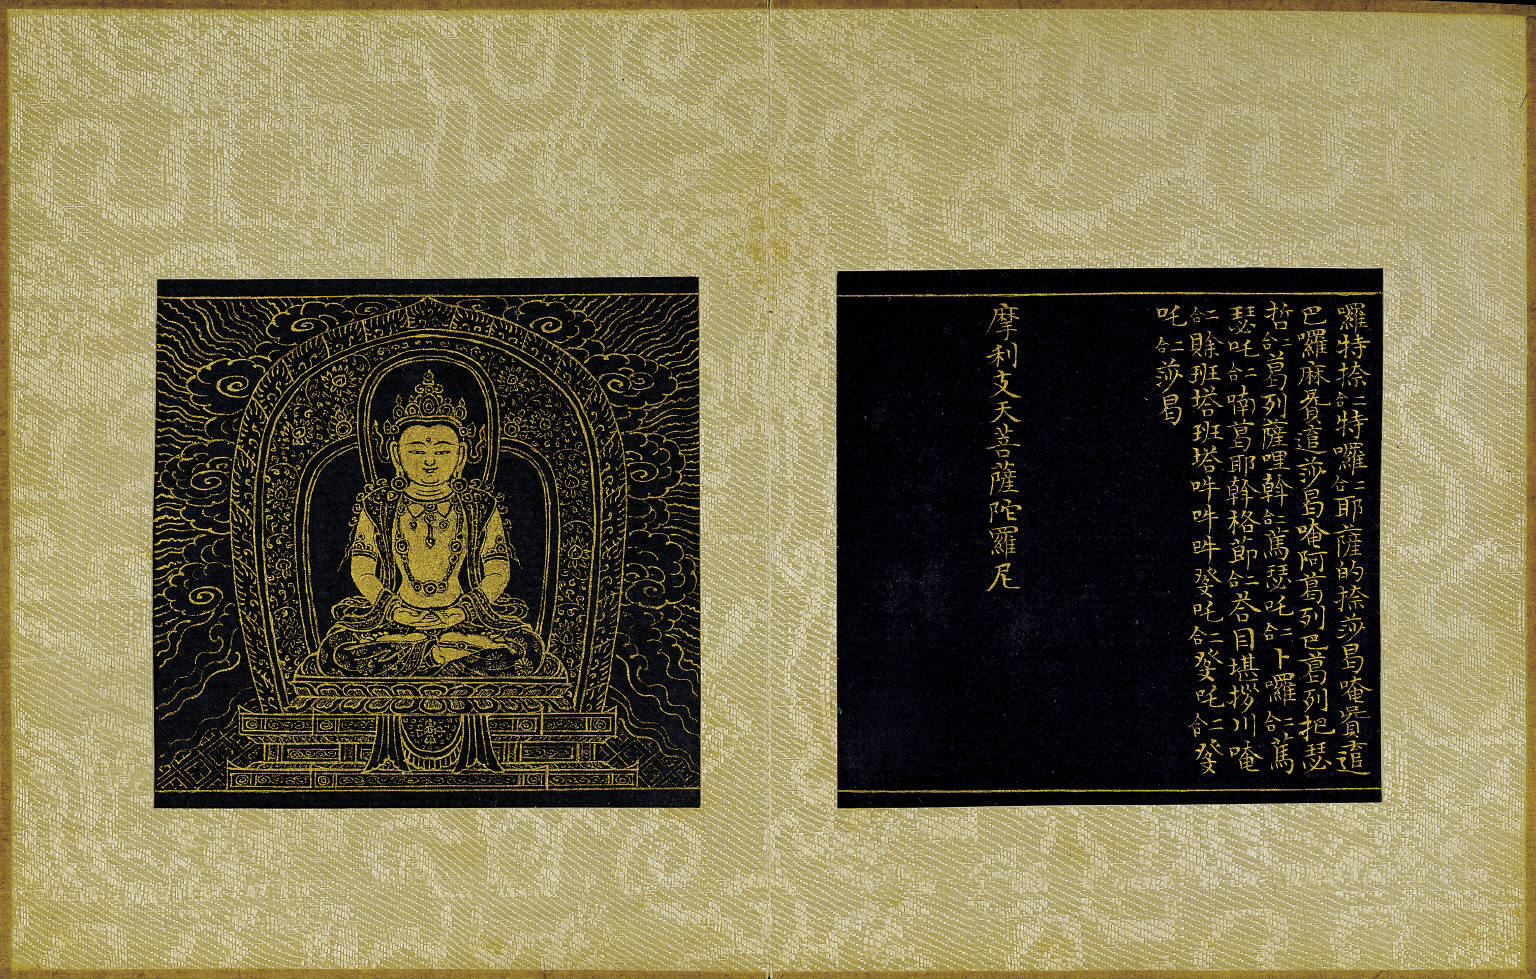 羅特捺二合特囉二合耶薩的捺莎曷唵𧶘𨖷
巴囉麻𧶘𨖷莎曷唵阿葛列巴葛列把瑟
哲二合葛列薩哩斡二合篤瑟吒二合卜囉二合篤
瑟吒二合喃葛耶斡格節二合荅目堪拶川唵
二合賒班塔班塔吽吽吽癹吒二合癹吒二合癹
吒二合莎曷
摩利支天菩薩陀羅尼